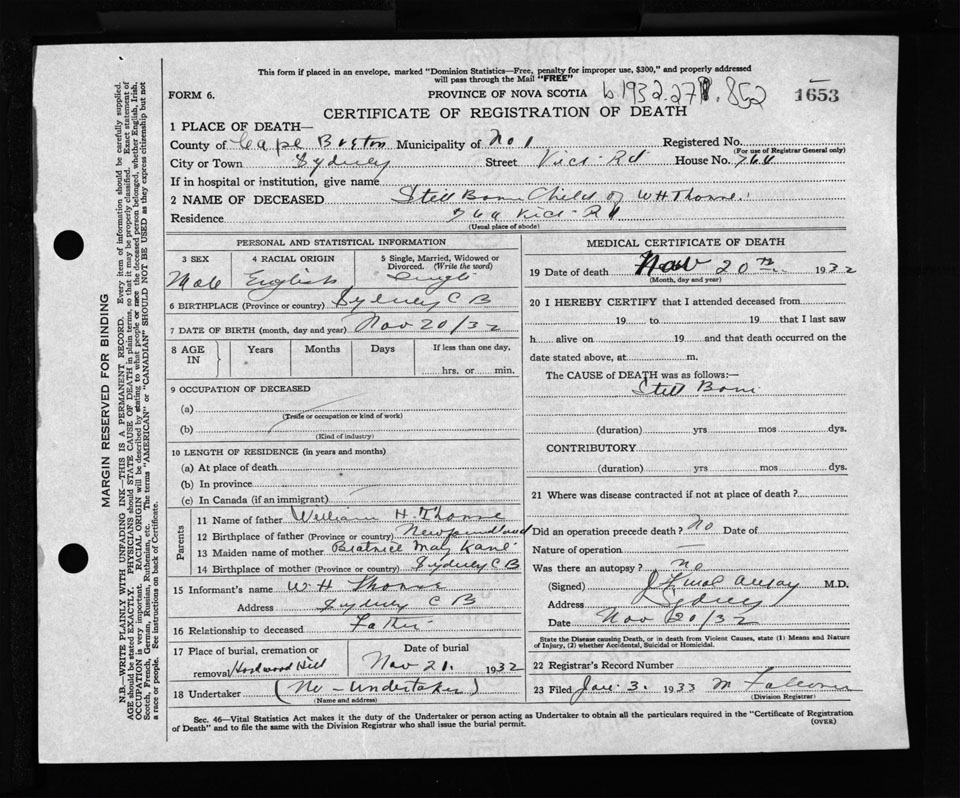 This form if placed in an envelope, marked "Dominion Statistics—Free, penalty for improper use, $300," and properly addressed
will pass through the Mail "FREE"
FORM 6. PROVINCE OF NOVA SCOTIA 1653
CERTIFICATE OF REGISTRATION OF DEATH
1 PLACE OF DEATH—
County of Cape Breton Municipality of No 1 Registered No.
(For use of Registrar General only)
City or Town Sydney Street Vict. Rd House No. 764
If in hospital or institution, give name
2 NAME OF DECEASED Still Born Child of W H Thorne
Residence 764 Vict. Rd
(Usual place of abode)
PERSONAL AND STATISTICAL INFORMATION
3 SEX 4 RACIAL ORIGIN 5 Single, Married, Widowed or Divorced. (Write the word)
Male English Single
6 BIRTHPLACE (Province or country) Sydney C B
7 DATE OF BIRTH (month, day and year) Nov 20/32
8 AGE IN Years Months Days If less than one day,
hrs. or min.
9 OCCUPATION OF DECEASED
(a)
(Trade or occupation or kind of work)
(b)
(Kind of industry)
10 LENGTH OF RESIDENCE (in years and months)
(a) At place of death
(b) In province
(c) In Canada (if an immigrant)
Parents
11 Name of father William H. Thorne
12 Birthplace of father (Province or country) Newfoundland
13 Maiden name of mother Beatrice May Kane
14 Birthplace of mother (Province or country) Sydney C B
15 Informant's name W H Thorne
Address Sydney C B
16 Relationship to deceased Father
17 Place of burial, cremation or removal Hardwood Hill
Date of burial
Nov 21. 1932
18 Undertaker (No - Undertaker)
(Name and address)
MEDICAL CERTIFICATE OF DEATH
19 Date of death Nov 20th 1932
(Month, day and year)
20 I HEREBY CERTIFY that I attended deceased from
19 to 19 that I last saw
h alive on 19 and that death occurred on the
date stated above, at m.
The CAUSE of DEATH was as follows:—
Still Born
(duration) yrs mos dys.
CONTRIBUTORY
(duration) yrs mos dys.
21 Where was disease contracted if not at place of death?
Did an operation precede death? No Date of
Nature of operation —
Was there an autopsy? No
(Signed) M.D.
Address Sydney
Date Nov 20/32
State the Disease causing Death, or in death from Violent Causes, state (1) Means and Nature
of Injury, (2) whether Accidental, Suicidal or Homicidal.
22 Registrar's Record Number
23 Filed Jan. 3. 1933
(Division Registrar)
Sec. 46—Vital Statistics Act makes it the duty of the Undertaker or person acting as Undertaker to obtain all the particulars required in the "Certificate of Registration
of Death" and to file the same with the Division Registrar who shall issue the burial permit. (OVER)
MARGIN RESERVED FOR BINDING
N.B.—WRITE PLAINLY WITH UNFADING INK—THIS IS A PERMANENT RECORD. Every item of information should be carefully supplied.
AGE should be stated EXACTLY. PHYSICIANS should STATE CAUSE OF DEATH in plain terms, so that it may be properly classified. Exact statement of
OCCUPATION is very important. RACIAL ORIGIN will be described by stating to what people or race the deceased person belonged, whether English, Irish,
Scotch, French, German, Russian, Ruthenian, etc. The terms "AMERICAN" or "CANADIAN" SHOULD NOT BE USED as they express citizenship but not
a race or people. See instructions on back of Certificate.